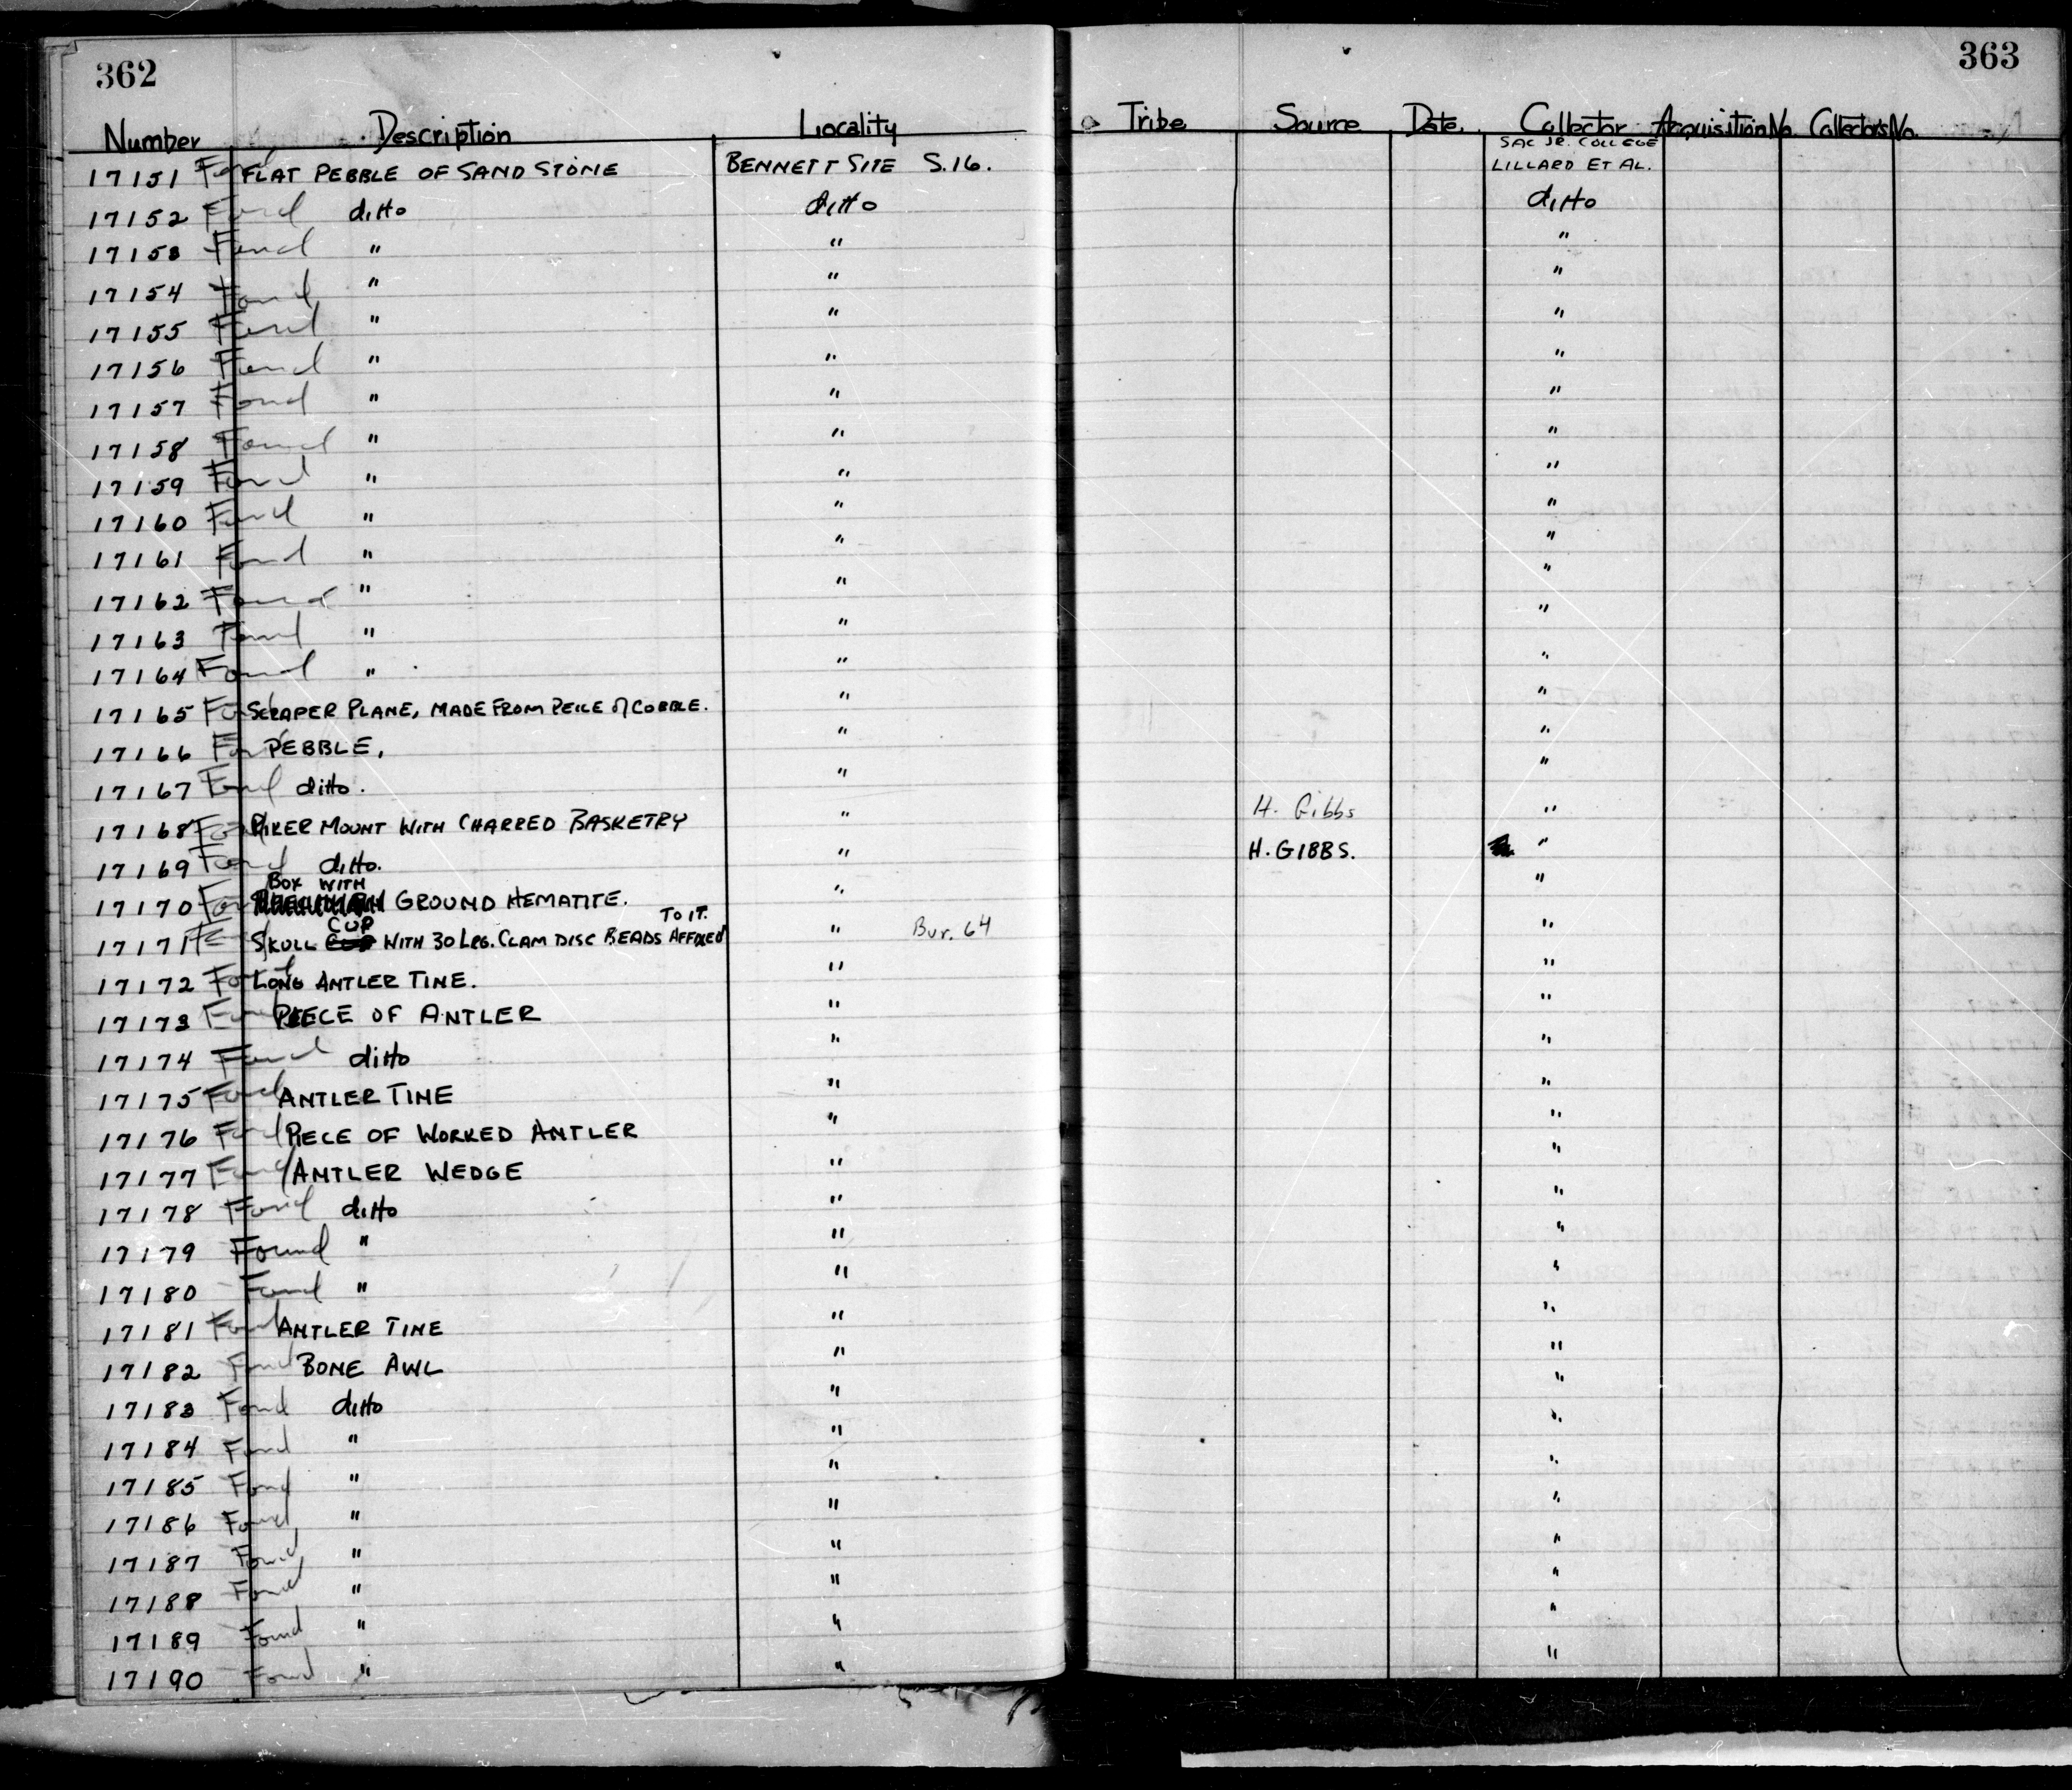 362 363
Number Description Locality Tribe Source Date Collector Acquisition No. Collectors No.
SAC JR. COLLEGE
17151 Found FLAT PEBBLE OF SAND STONE BENNETT SITE S.16. LILLARD ET AL.
17152 Found ditto ditto ditto
17153 Found " " "
17154 Found " " "
17155 Found " " "
17156 Found " " "
17157 Found " " "
17158 Found " " "
17159 Found " " "
17160 Found " " "
17161 Found " " "
17162 Found " " "
17163 Found " " "
17164 Found " " "
17165 Found SCRAPER PLANE, MADE FROM PEICE of COBBLE. " "
17166 Found PEBBLE, " "
17167 Found ditto. " "
17168 Found RIKER MOUNT WITH CHARRED BASKETRY " H. Gibbs "
17169 Found ditto. " H. GIBBS. "
BOX WITH
17170 Found GROUND HEMATITE. " "
CUP TO IT.
17171 SKULL CUP WITH 30 LRG. CLAM DISC BEADS AFFIXED " Bur. 64 "
17172 Found LONG ANTLER TINE. " "
17173 Found PIECE OF ANTLER " "
17174 Found ditto " "
17175 Found ANTLER TINE " "
17176 Found PIECE OF WORKED ANTLER " "
17177 Found ANTLER WEDGE " "
17178 Found ditto " "
17179 Found " " "
17180 Found " " "
17181 Found ANTLER TINE " "
17182 Found BONE AWL " "
17183 Found ditto " "
17184 Found " " "
17185 Found " " "
17186 Found " " "
17187 Found " " "
17188 Found " " "
17189 Found " " "
17190 Found " " "